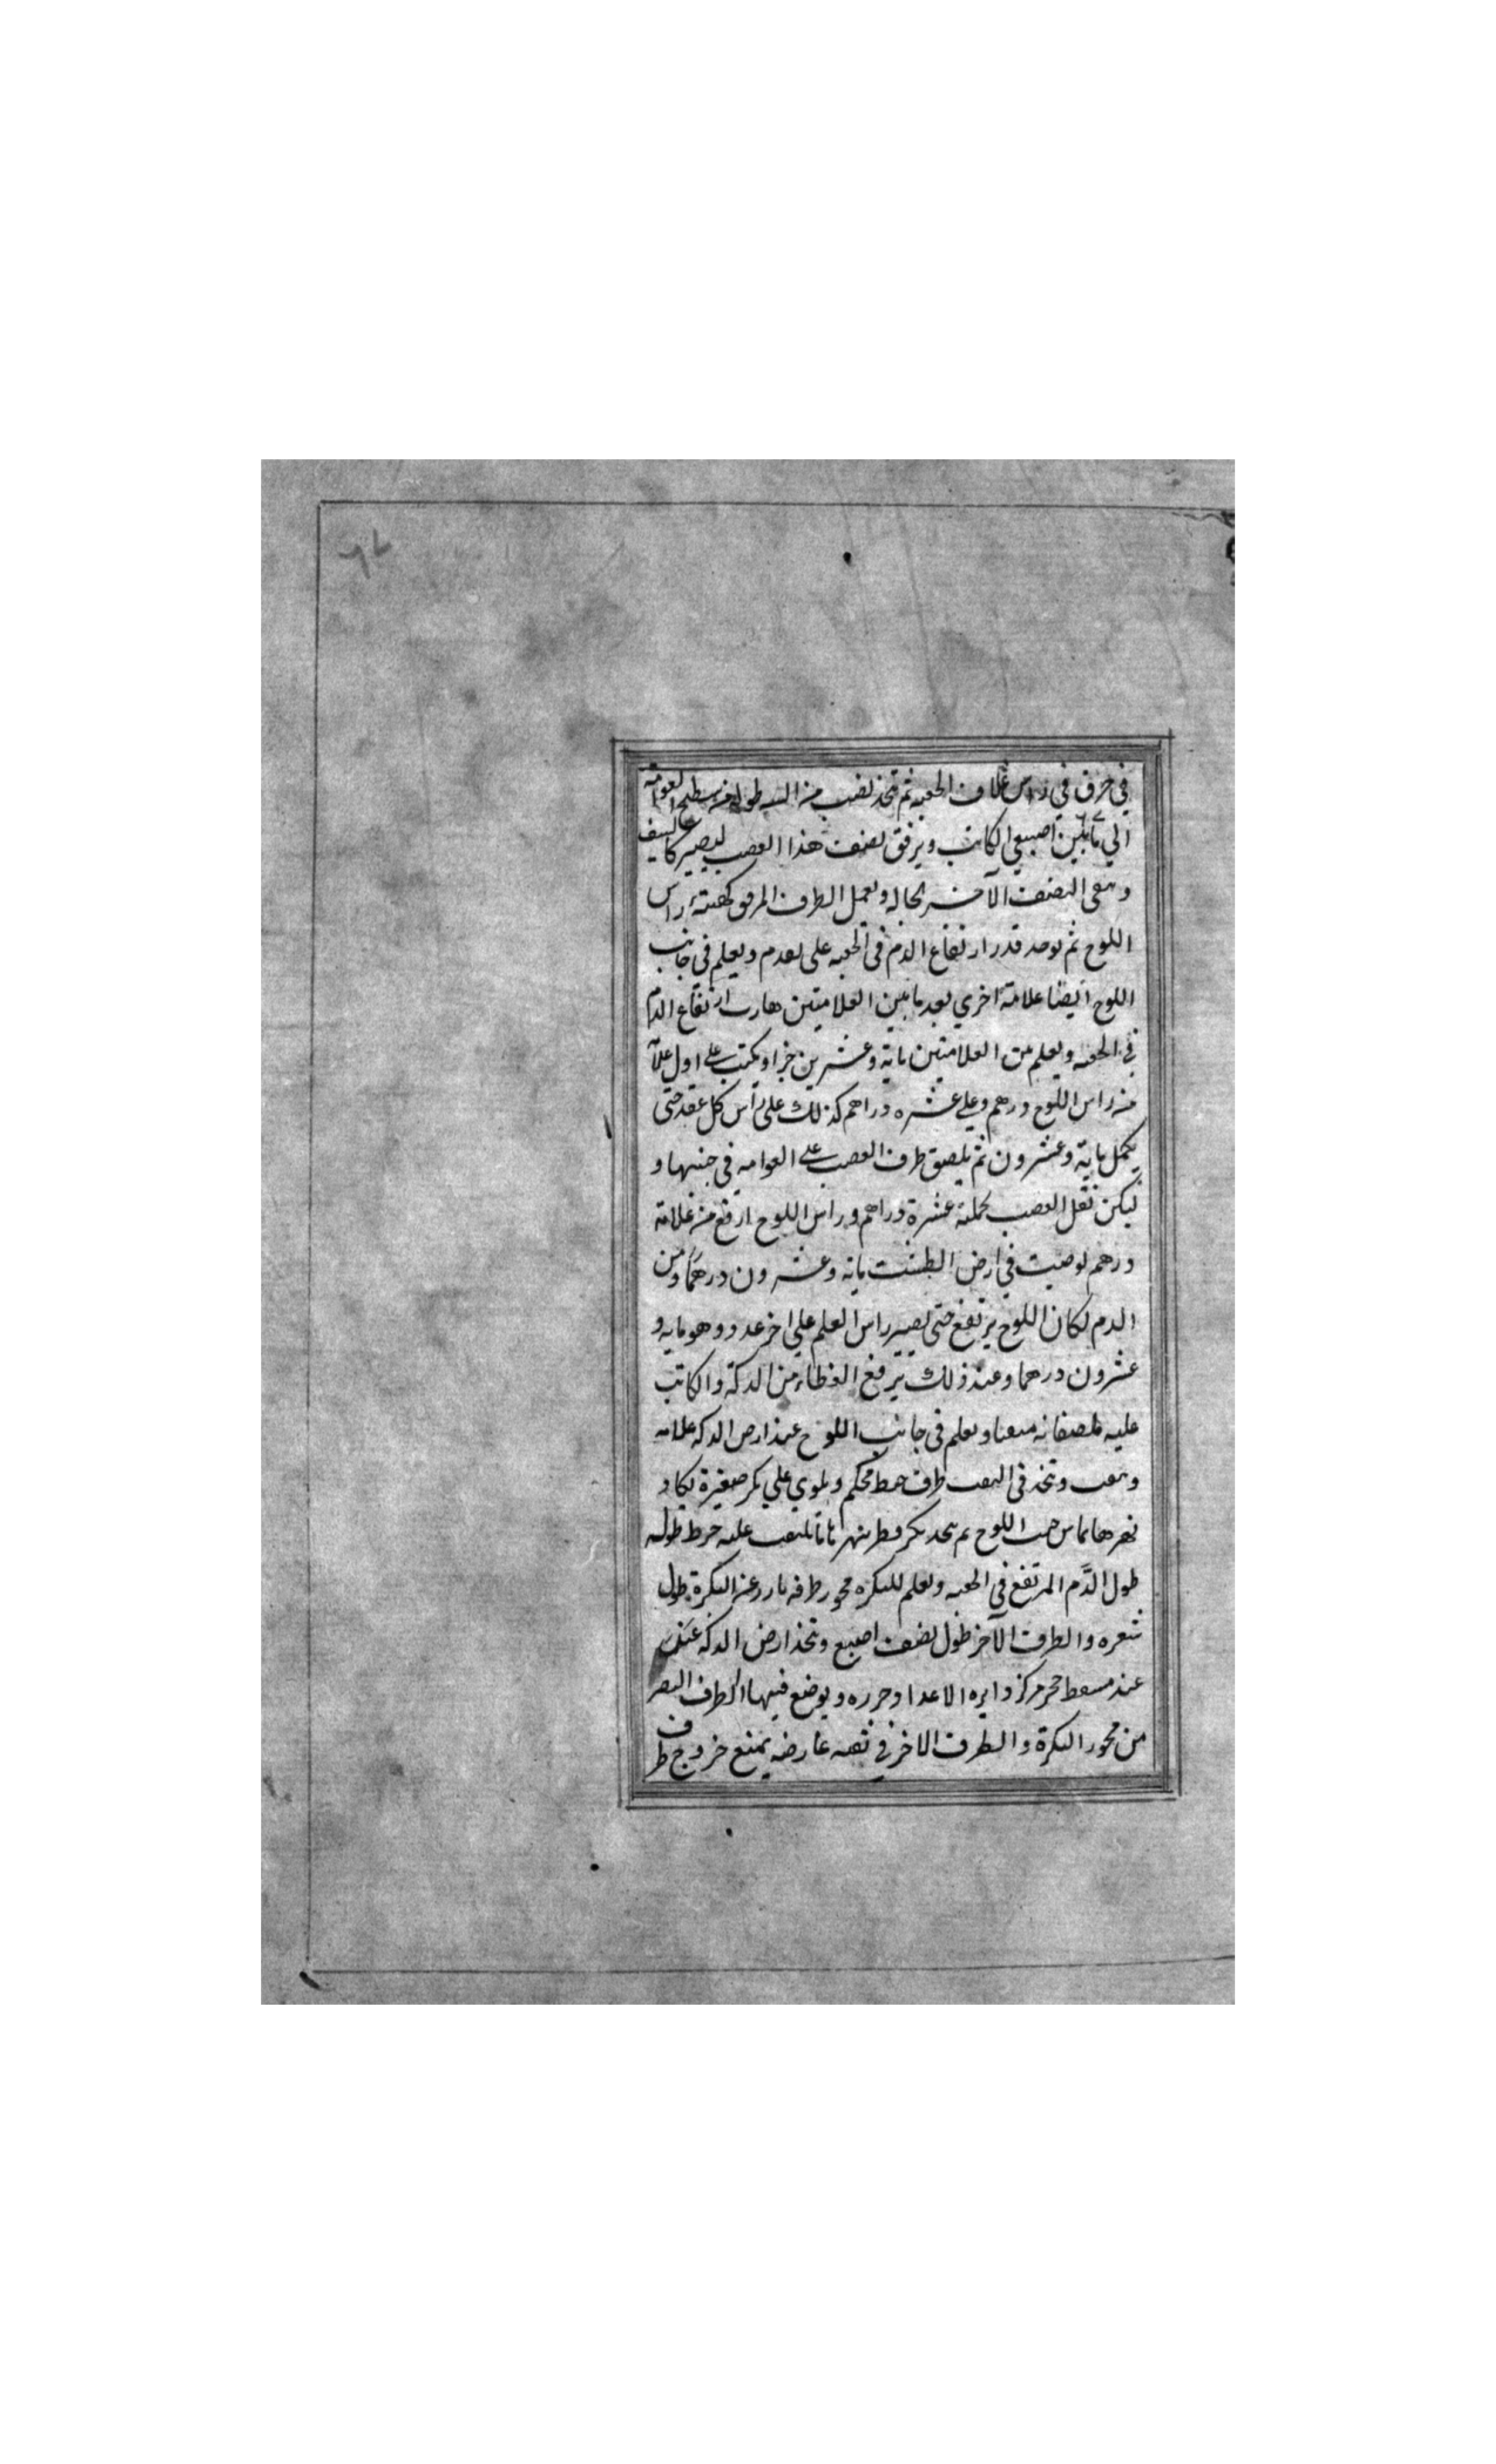 ٦٧
في خرق في راس غلاف الحعبه ثم تتخذ نصب من طوله من سطح العوامة
الي ما بين اصبعي الكاتب ويرفق نصف هذا العصب ليصير كالسيف
وسعى النصف الآخر بحاله ويعمل الطرف المرفق كهيئة راس
اللوح ثم يوخذ قدر ارتفاع الدم فى الحعبه على تعدم ويعلم فى جانب
اللوح ايضا علامة اخري بعد ما بين العلامتين ارتفاع الدم
في الحعبه ويعلم بين العلامتين ماية وعشرين جزا ويكتب على اول علا
من راس اللوح درهم وعلي عشره دراهم كذلك على راس كل عقد حتى
يكمل ماية وعشرون ثم يلصق طرف العصب على العوامه في جنبها و
ليكن ثقل العصب بجملته عشرة دراهم وراس اللوح ارفع من علامة
درهم لوصبت في ارض الطشت مائه وعشرون درهمًا ومن
الدم لكان اللوح يرتفع حتى يصير راس العلم علي اخر عدد وهو مايه و
عشرون درهما وعند ذلك يرفع الغطاء من الدكة والكاتب
عليه ملصقا به ويعلم فى جانب اللوح عند ارض الدكه علامه
وتتخذ فى الثقب طرف خيط محكم ويلوي علي بكر صغيرة يكاد
نهرها يماس جنب اللوح ثم يتخذ بكر وطر نهرها ما يلتف عليه خيط طوله
طول الدَّم المرتفع في الحعبه ويعلم للبكره محور طرفه بارز عن البكرة طول
شعره والطرف الآخر طول نصف اصبع وتتخذ ارض الدكه عند
عند مسقط حجر مركز دايره الاعداد وحرره ويوضع فيها الطرف
من محور البكرة والطرف الاخر في ثقبه عارضه يمنع خروج طرف